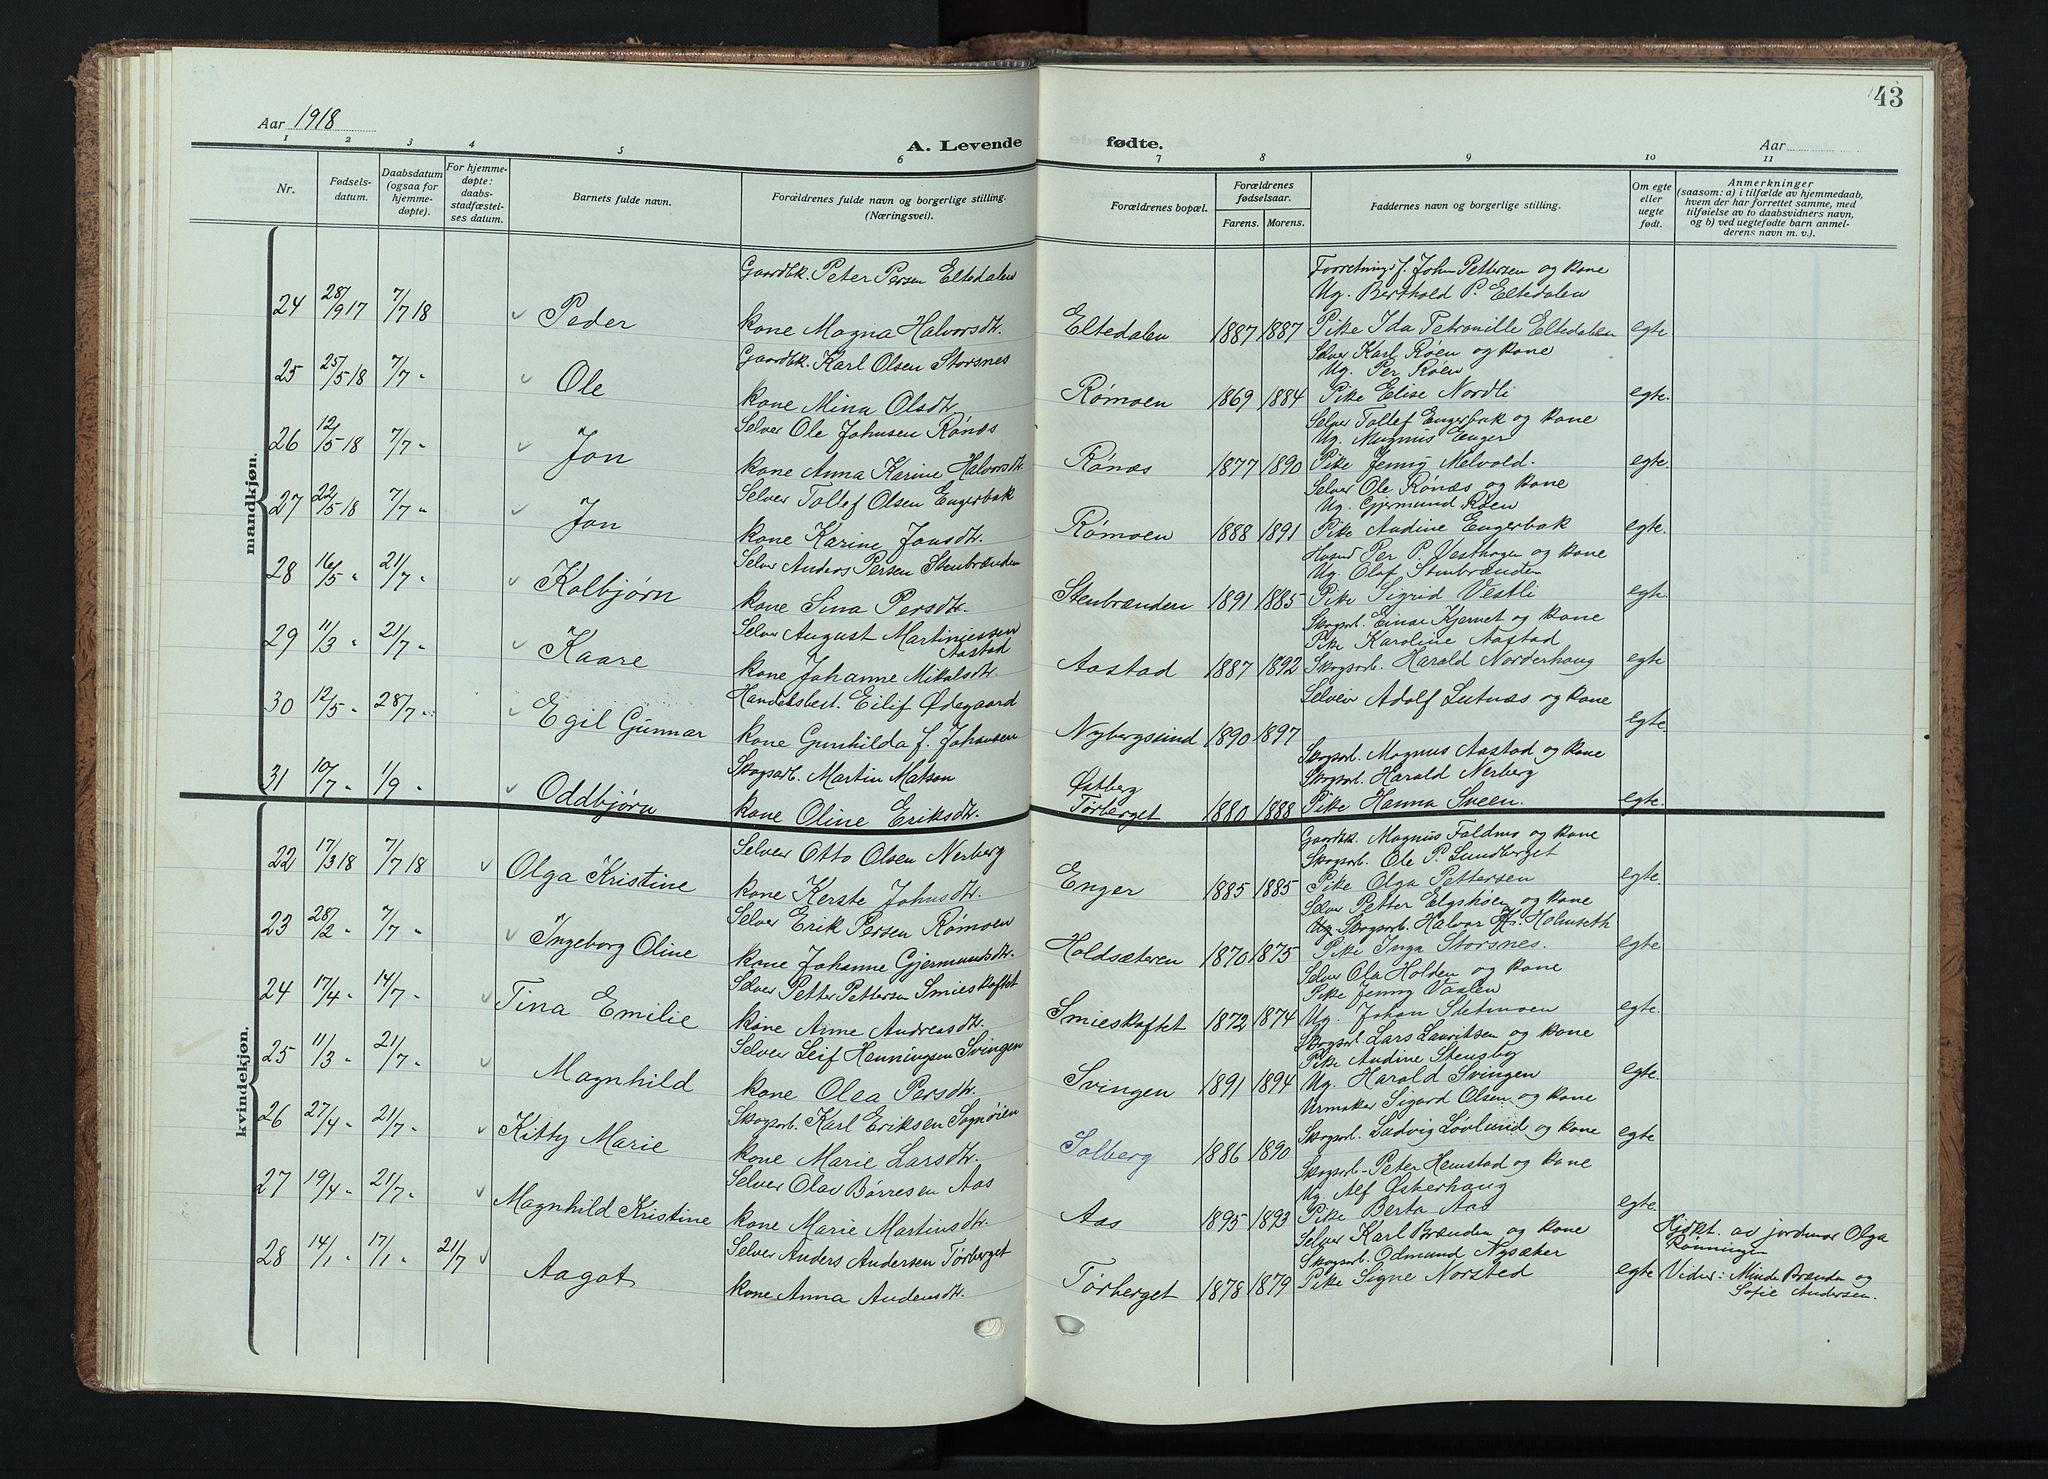 43
Aar 1918
A. Levende fødte.
Aar
1 2 3 4 5 6 7 8 9 10 11
Nr.
Fødsels-
datum.
Daabsdatum
(ogsaa for
hjemme-
døpte).
For hjemme-
døpte:
daabs-
stadfæstel-
ses datum.
Barnets fulde navn.
Forældrenes fulde navn og borgerlige stilling.
(Næringsvei).
Forældrenes bopæl.
Forældrenes
fødselsaar.
Farens. Morens.
Faddernes navn og borgerlige stilling.
Om egte
eller
uegte
født.
Anmerkninger
(saasom: a) i tilfælde av hjemmedaab,
hvem der har forrettet samme, med
tilføielse av to daabsvidners navn,
og b) ved uegtefødte barn anmel-
derens navn m. v.).
mandkjøn.
Gaardbk. Peter Persen Eltedalen
Forretningsf. John Pettersen og kone
Ug. Berthold P. Eltedalen
24 28/9 17 7/7 18 Peder kone Magna Halvorsdtr. Eltedalen 1887 1887 Pike Ida Petronille Eltedalen egte
Gaardbk. Karl Olsen Storsnes
Selver Karl Røen og kone
Ug. Per Røen
25 25/5 18 7/7 " Ole kone Mina Olsdtr. Rømoen 1869 1884 Pike Elise Nordli egte.
Selver Ole Johnsen Rønæs
Selver Tollef Engerbak og kone
Ug. Magnus Enger
26 12/5 18 7/7 " Jon kone Anna Karine Halvorsdtr. Rønæs 1877 1890 Pike Jenny Melvold. egte.
Selver Tollef Olsen Engerbak
Selver Ole Rønæs og kone
Ug. Gjermund Røen
27 22/5 18 7/7 " Jon kone Karine Jonsdtr. Rømoen 1888 1891 Pike Andine Engerbak egte.
Selver Anders Persen Stenbrænden
Husmd Per P. Vesthagen og kone
Ug. Olaf Stenbrænden
28 16/5 " 21/7 " Kolbjørn kone Sina Persdtr. Stenbrænden 1891 1885 Pike Sigrid Vestli egte.
Selver August Martiniussen
Aastad
Skogsarb. Einar Kjernet og kone
Pike Karoline Aastad
29 11/3 " 21/7 " Kaare kone Johanne Mikalsdtr. Aastad 1887 1892 Skogsarb. Harald Norderhaug egte
Handelsbest. Eilif Ødegaard
Selveier Adolf Lutnæs og kone
30 12/5 " 28/7 " Egil Gunnar kone Gunhilda f. Johansen Nybergsund 1890 1897 egte.
Skogsarb. Martin Matson
Skogsarb. Magnus Aastad og kone
Østberg
Skogsarb. Harald Nerberg
31 10/7 " 1/9 " Oddbjørn kone Oline Eriksdtr. Tørberget 1880 1888 Pike Hanna Sveen. egte.
kvindekjøn.
Selveier Otto Olsen Nerberg
Gaardbk. Magnus Faldmo og kone
Skogsarb. Ole P. Lundberget
22 17/3 18 7/7 18 Olga Kristine kone Kerste Johnsdtr. Enger 1885 1885 Pike Olga Pettersen egte.
Selver Erik Persen Rømoen
Selver Petter Elgshøen og kone
Ug. Skogsarb. Halvor Hs. Holmseth
23 28/2 " 7/7 " Ingeborg Oline kone Johanne Gjermundsdtr. Holdsæteren 1870 1875 Pike Inga Storsnes. egte
Selver Petter Pettersen Smieskaftet
Selver Ola Holden og kone
Pike Jenny Vaalen
24 17/4 " 14/7 " Tina Emilie kone Anne Andreasdtr. Smieskaftet 1872 1874 Ug. Johan Stetmoen egte.
Selver Leif Henningsen Svingen
Skogsarb Lars Lauritsen og kone
Pike Andine Stensby
25 11/3 " 21/7 " Magnhild kone Olea Persdtr. Svingen 1891 1894 Ug. Harald Svingen egte.
Skogsarb. Karl Eriksen Sognøien
Urmaker Sigurd Olsen og kone
26 27/4 " 21/7 " Kitty Marie kone Marie Larsdtr. Solberg 1886 1890 Skogsarb. Ludvig Løvlund og kone egte
Selver Olav Børresen Aas
Skogsarb. Peter Hemstad og kone
Ug. Alf Østerhaug
27 19/4 " 21/7 " Magnhild Kristine kone Marie Martinsdtr. Aas 1895 1893 Pike Berta Aas egte.
Selver Anders Andersen Tørberget
Selver Karl Brænden og kone
Skogsarb. Odmund Nysæter
Hjdøpt. av jordmor Olga
Rønningen
28 14/1 " 17/1 " 21/7 Aagot kone Anna Andersdtr. Tørberget 1878 1879 Pike Signe Norsted egte Vidner: Minda Brænden og
Sofie Andersen.